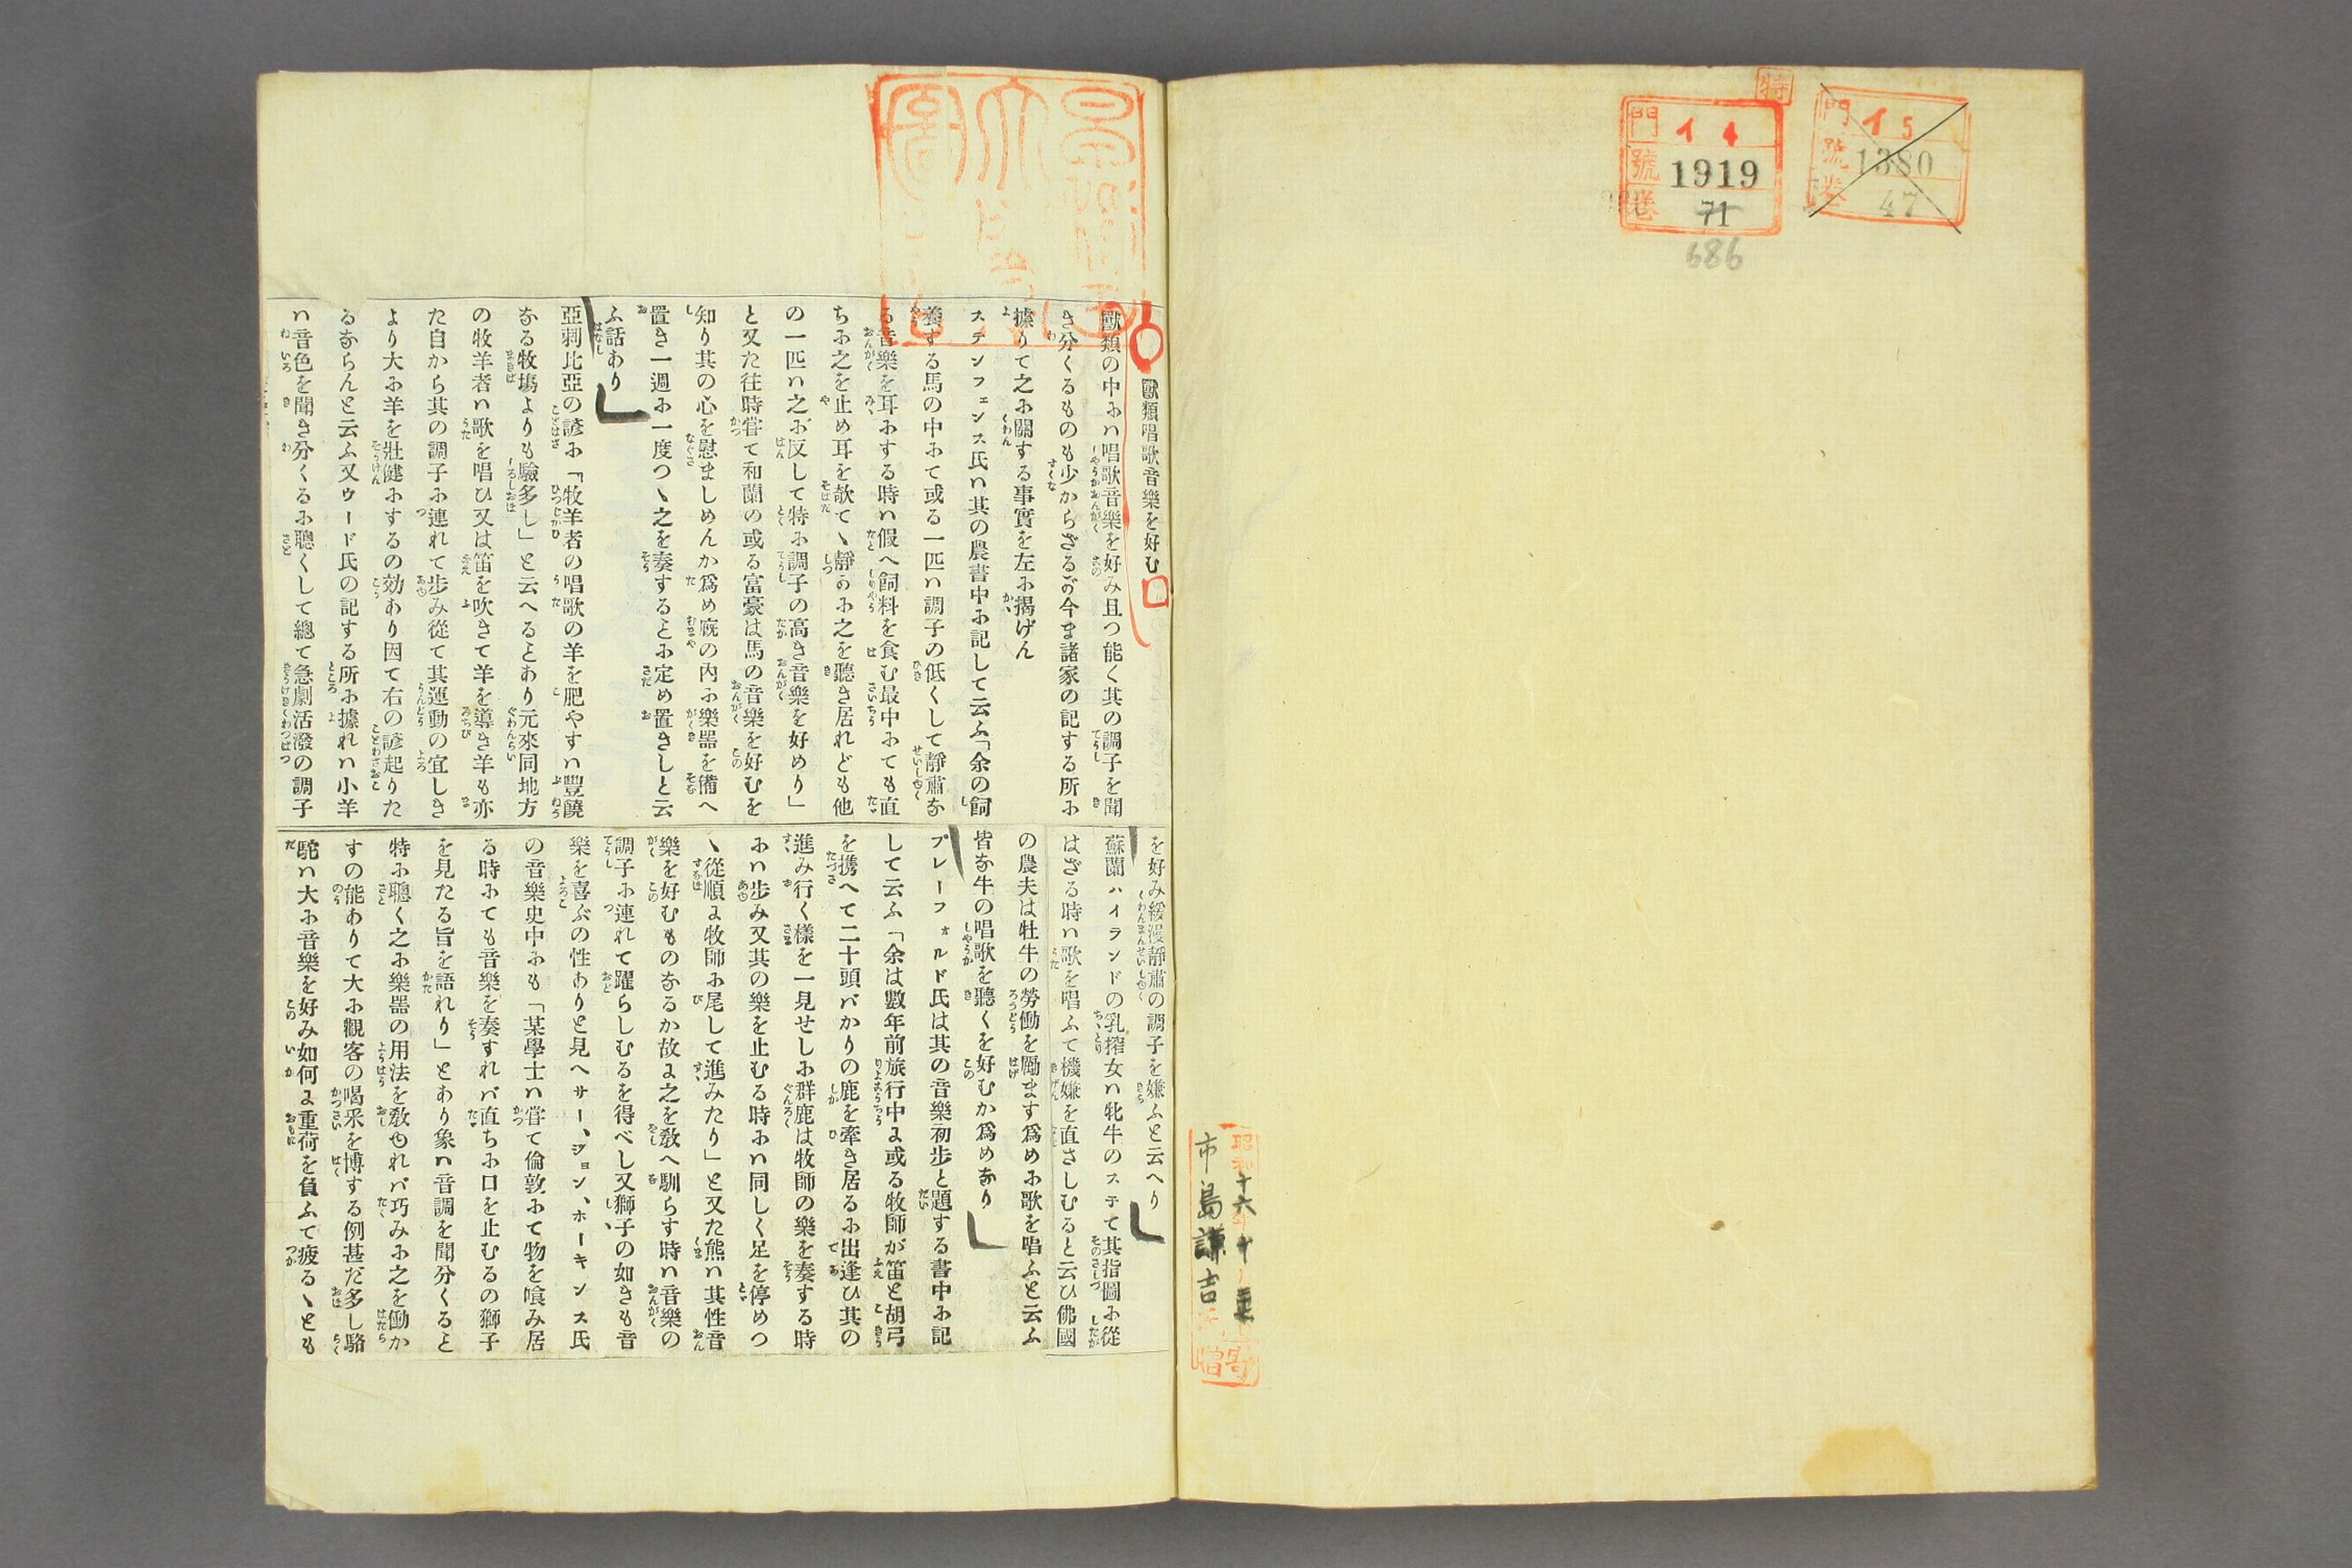 特
門 イ 4
號 1919
卷 71
686
門 イ 5
號 1380
卷 47
昭和十六年十
市島謙吉
寄贈
獸類唱歌音樂を好む
獸類の中にハ唱歌音樂を好み且つ能く其の調子を聞
き分くるものも少からざるが今ま諸家の記する所に
據りて之に關する事實を左に揭げん
ステンフェンス氏ハ其の農書中に記して云ふ「余の飼
養する馬の中にて或る一匹ハ調子の低くして靜肅な
る音樂を耳にする時ハ假へ飼料を食む最中にても直
ちに之を止め耳を欹てヽ靜かに之を聽き居れども他
の一匹ハ之に反して特に調子の高き音樂を好めり」
と又た往時甞て和蘭の或る富豪は馬の音樂を好むを
知り其の心を慰ましめんか爲め廐の内に樂器を備へ
置き一週に一度つヽ之を奏するとに定め置きしと云
ふ話あり
亞剌比亞の諺に「牧羊者の唱歌の羊を肥やすハ豐饒
なる牧塲よりも驗多し」と云へるとあり元來同地方
の牧羊者ハ歌を唱ひ又は笛を吹きて羊を導き羊も亦
た自から其の調子に連れて歩み從て其運動の宜しき
より大に羊を壯健にするの効あり因て右の諺起りた
るならんと云ふ又ウード氏の記する所に據れハ小羊
ハ音色を聞き分くるに聰くして總て急劇活潑の調子
を好み緩漫靜肅の調子を嫌ふと云へり
蘇蘭ハイランドの乳搾女ハ牝牛のステて其指圖に從
はざる時ハ歌を唱ふて機嫌を直さしむると云ひ佛國
の農夫は牡牛の勞働を勵ます爲めに歌を唱ふと云ふ
皆な牛の唱歌を聽くを好むか爲めなり
プレーフォルド氏は其の音樂初歩と題する書中に記
して云ふ「余は數年前旅行中に或る牧師が笛と胡弓
を携へて二十頭バかりの鹿を牽き居るに出逢ひ其の
進み行く樣を一見せしに群鹿は牧師の樂を奏する時
にハ歩み又其の樂を止むる時にハ同しく足を停めつ
ヽ從順に牧師に尾して進みたり」と又た熊ハ其性音
樂を好むものなるか故に之を敎へ馴らす時ハ音樂の
調子に連れて躍らしむるを得べし又獅子の如きも音
樂を喜ぶの性ありと見へサー、ジョン、ホーキンス氏
の音樂史中にも「某學士ハ甞て倫敦にて物を喰み居
る時にても音樂を奏すれバ直ちに口を止むるの獅子
を見たる旨を語れり」とあり象ハ音調を聞分くると
特に聰く之に樂器の用法を敎ゆれバ巧みに之を働か
すの能ありて大に觀客の喝釆を博する例甚だ多し駱
駝ハ大に音樂を好み如何に重荷を負ふて疲るヽとも